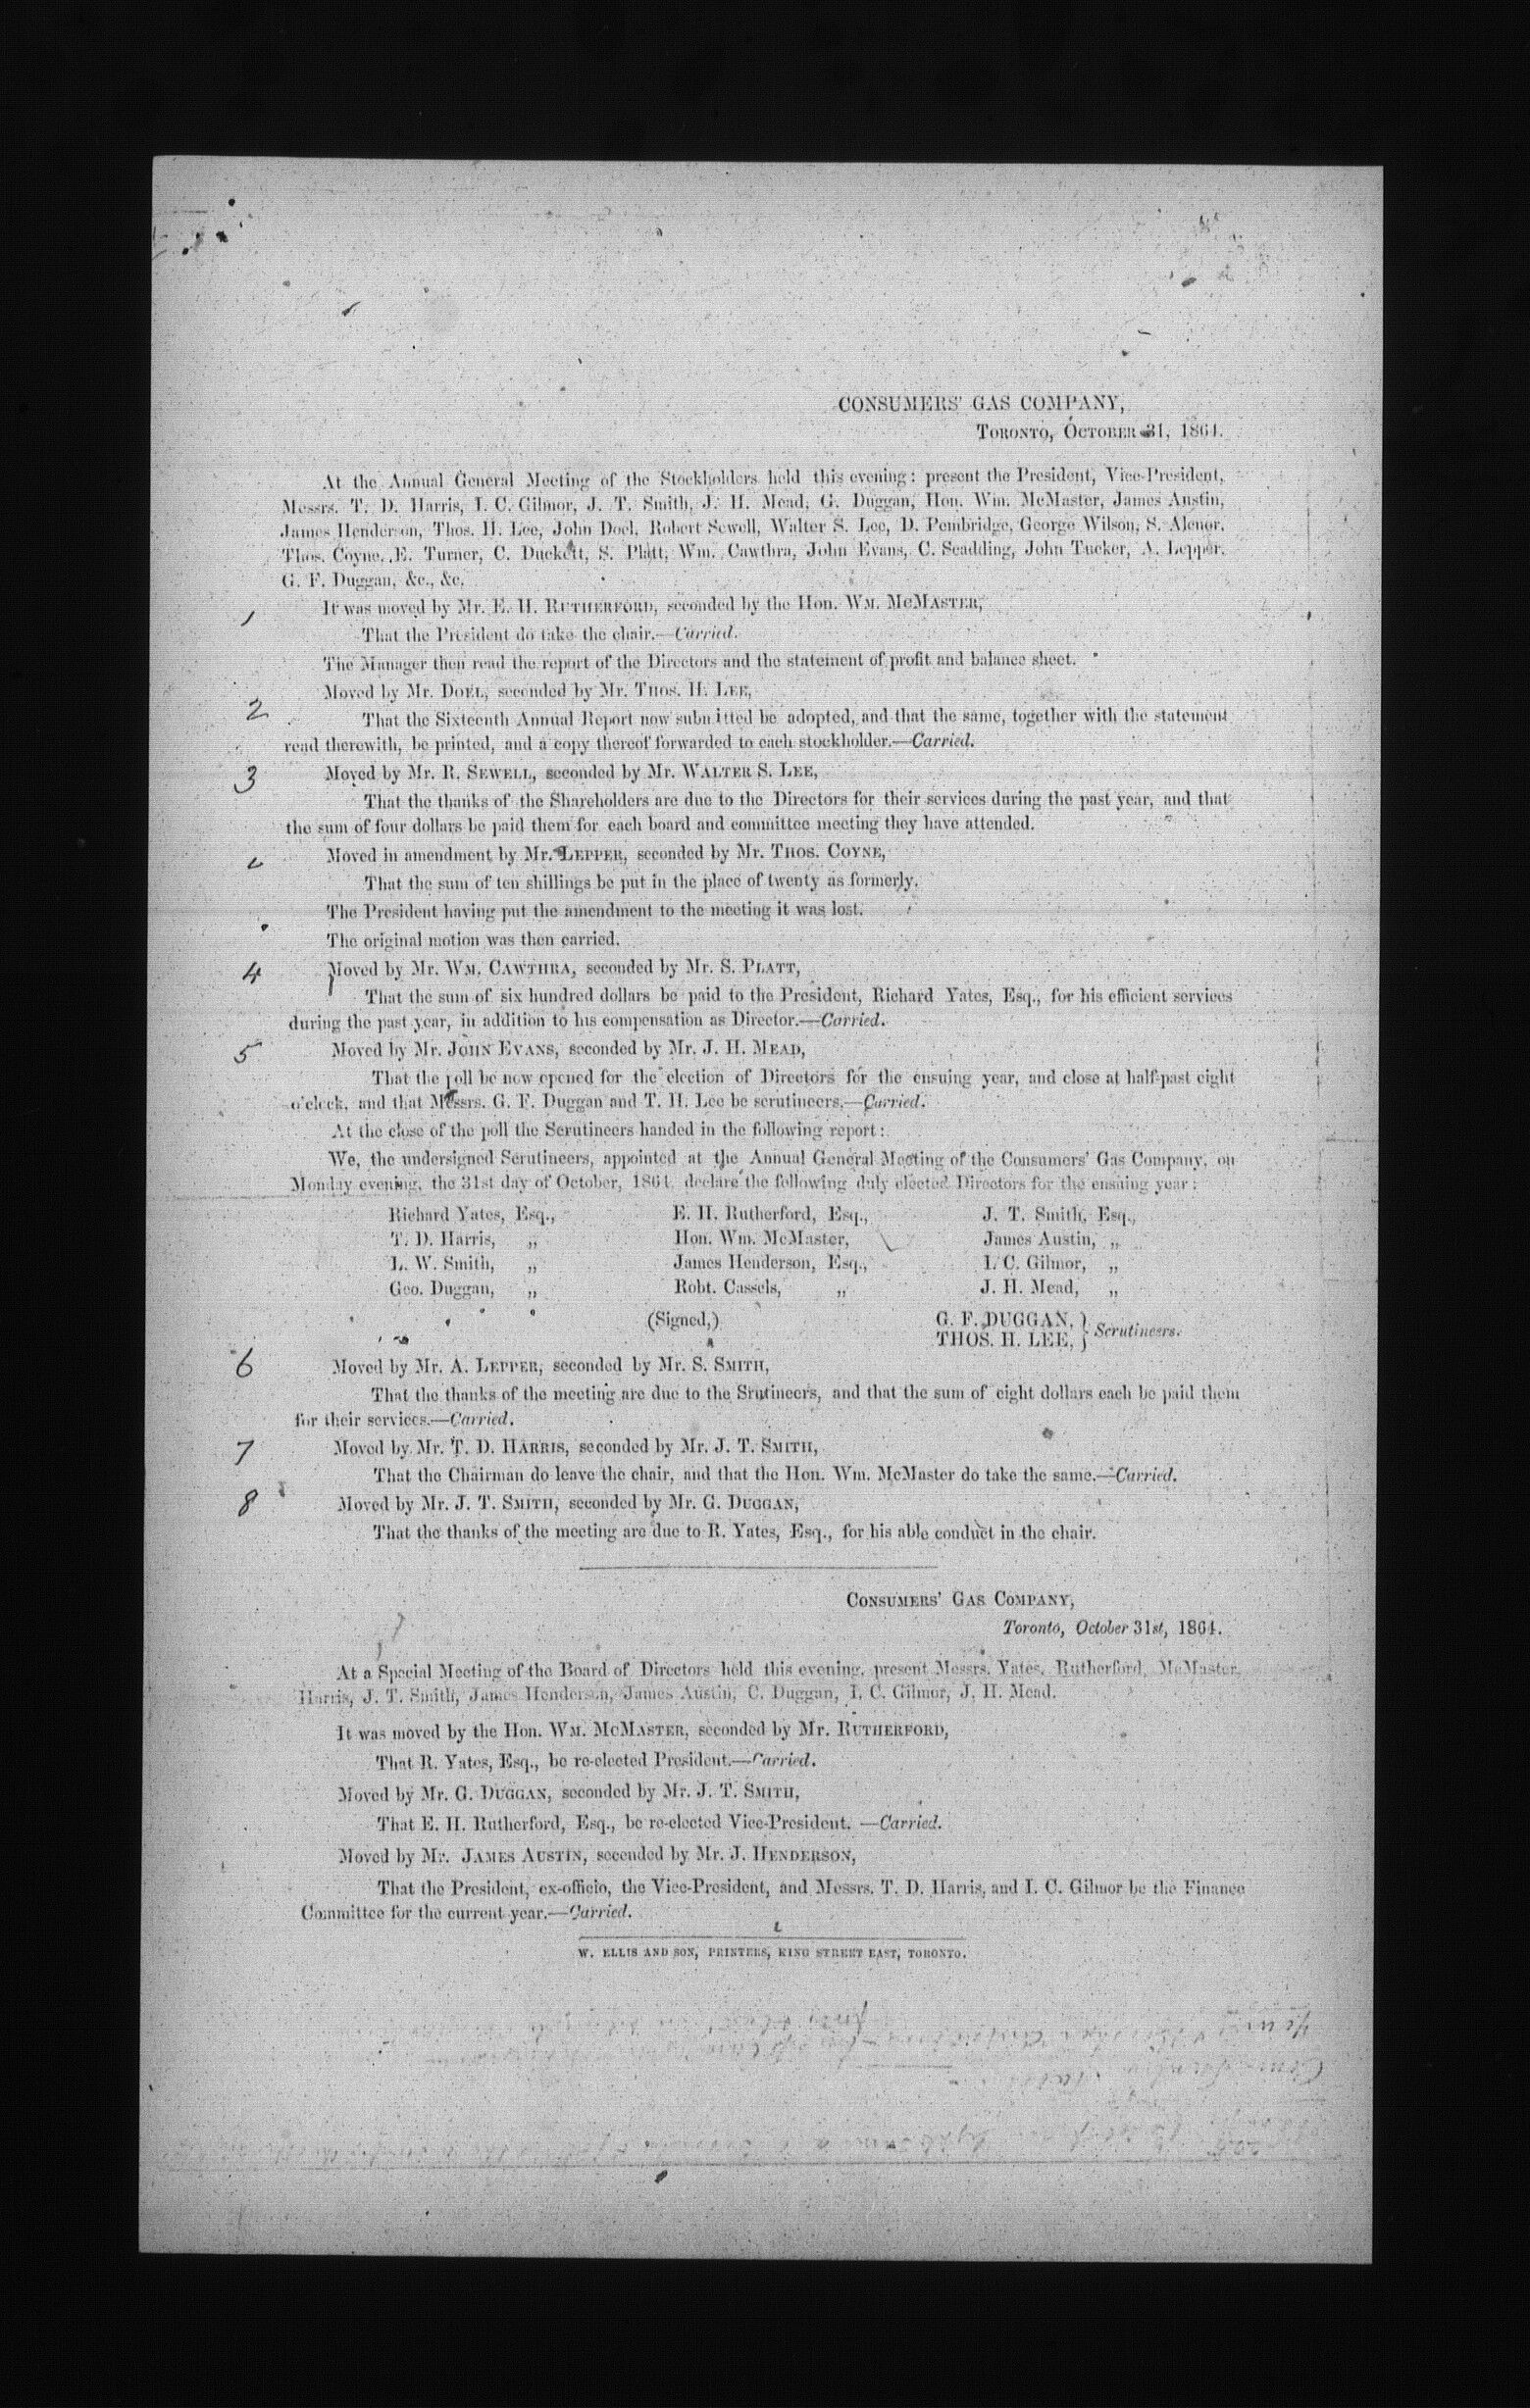 CONSUMERS' GAS COMPANY,
TORONTO, OCTOBER 31, 1864.
At the Annual General Meeting of the Stockholders held this evening: present the President, Vice-President,
Messrs. T. D. Harris, I. C. Gilmor, J. T. Smith, J. H. Mead, G. Duggan, Hon. Wm. McMaster, James Austin,
James Henderson, Thos. H. Lee, John Doel, Robert Sewell, Walter S. Lee, D. Pembridge, George Wilson, S. Alcnor,
Thos. Coyne, E. Turner, C. Duckett, S. Platt, Wm. Cawthra, John Evans, C. Scadding, John Tucker, A. Lepper,
G. F. Duggan, &c., &c.
1 It was moved by Mr. E. H. RUTHERFORD, seconded by the Hon. WM. MCMASTER,
That the President do take the chair.—Carried.
The Manager then read the report of the Directors and the statement of profit and balance sheet.
Moved by Mr. DOEL, seconded by Mr. THOS. H. LEE,
2 That the Sixteenth Annual Report now submitted be adopted, and that the same, together with the statement
read therewith, be printed, and a copy thereof forwarded to each stockholder.—Carried.
3 Moved by Mr. R. SEWELL, seconded by Mr. WALTER S. LEE,
That the thanks of the Shareholders are due to the Directors for their services during the past year, and that
the sum of four dollars be paid them for each board and committee meeting they have attended.
Moved in amendment by Mr. LEPPER, seconded by Mr. THOS. COYNE,
That the sum of ten shillings be put in the place of twenty as formerly.
The President having put the amendment to the meeting it was lost.
The original motion was then carried.
4 Moved by Mr. WM. CAWTHRA, seconded by Mr. S. PLATT,
That the sum of six hundred dollars be paid to the President, Richard Yates, Esq., for his efficient services
during the past year, in addition to his compensation as Director.—Carried.
5 Moved by Mr. JOHN EVANS, seconded by Mr. J. H. MEAD,
That the poll be now opened for the election of Directors for the ensuing year, and close at half-past eight
o'clock, and that Messrs. G. F. Duggan and T. H. Lee be scrutineers.—Carried.
At the close of the poll the Scrutineers handed in the following report:
We, the undersigned Scrutineers, appointed at the Annual General Meeting of the Consumers' Gas Company, on
Monday evening, the 31st day of October, 1864, declare the following duly elected Directors for the ensuing year:
Richard Yates, Esq., E. H. Rutherford, Esq., J. T. Smith, Esq.,
T. D. Harris, „ Hon. Wm. McMaster, James Austin, „
L. W. Smith, „ James Henderson, Esq., I. C. Gilmor, „
Geo. Duggan, „ Robt. Cassels, „ J. H. Mead, „
(Signed,) G. F. DUGGAN, }
THOS. H. LEE, } Scrutineers.
6 Moved by Mr. A. LEPPER, seconded by Mr. S. SMITH,
That the thanks of the meeting are due to the Srutineers, and that the sum of eight dollars each be paid them
for their services.—Carried.
7 Moved by Mr. T. D. HARRIS, seconded by Mr. J. T. SMITH,
That the Chairman do leave the chair, and that the Hon. Wm. McMaster do take the same.—Carried.
8 Moved by Mr. J. T. SMITH, seconded by Mr. G. DUGGAN,
That the thanks of the meeting are due to R. Yates, Esq., for his able conduct in the chair.
CONSUMERS' GAS COMPANY,
Toronto, October 31st, 1864.
At a Special Meeting of the Board of Directors held this evening, present Messrs. Yates, Rutherford, McMaster,
Harris, J. T. Smith, James Henderson, James Austin, C. Duggan, I. C. Gilmor, J. H. Mead.
It was moved by the Hon. WM. MCMASTER, seconded by Mr. RUTHERFORD,
That R. Yates, Esq., be re-elected President.—Carried.
Moved by Mr. G. DUGGAN, seconded by Mr. J. T. SMITH,
That E. H. Rutherford, Esq., be re-elected Vice-President. —Carried.
Moved by Mr. JAMES AUSTIN, seconded by Mr. J. HENDERSON,
That the President, ex-officio, the Vice-President, and Messrs. T. D. Harris, and I. C. Gilmor be the Finance
Committee for the current year.—Carried.
W. ELLIS AND SON, PRINTERS, KING STREET EAST, TORONTO.